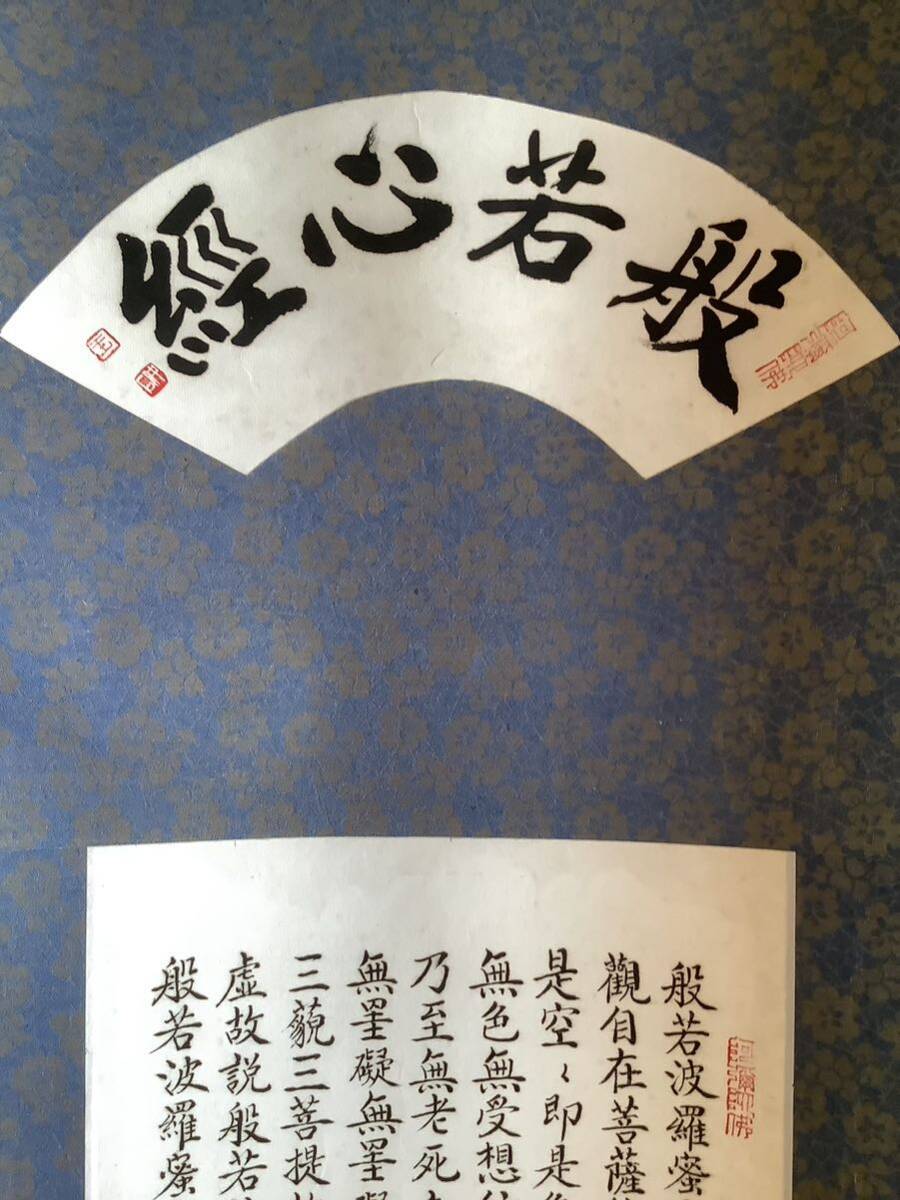 般若心經
阿彌陀佛
般若波羅蜜
觀自在菩薩
是空〻即是
無色無受想
乃至無老死
無罣礙無罣
三藐三菩提
虛故説般若
般若波羅蜜